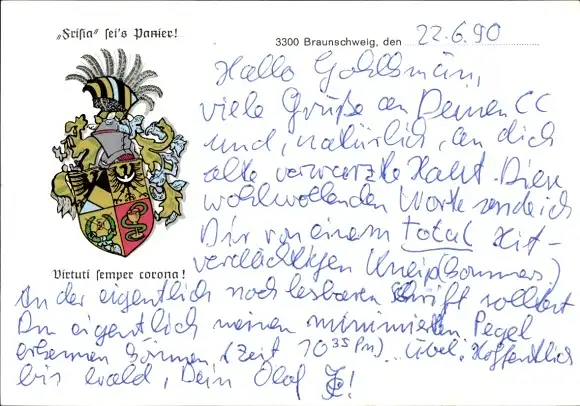 „Frisia“ sei's Panier!
3300 Braunschweig, den 22.6.90
Hallo
viele Grüße an Deinen CC
und, natürlich, an dich
alte verwarzte Haut. Diese
wohlwollenden Worte sende ich
Dir von einem total Hit-
verdächtigen Kneip(Sommers)
Virtuti semper corona!
An der eigentlich noch lesbaren Schrift solltest
Du eigentlich meinen minimalen Pegel
erkennen können (Zeit 10 35 Pm)... Übel. Hoffentlich
bis bald, Dein Olaf